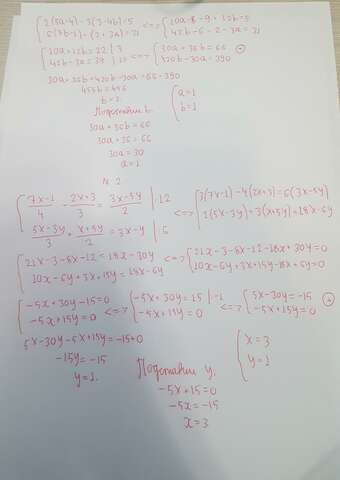 { 2(5a-4)-3(3-4b)=5
6(7b-1)-(2+3a)=31 <=> { 10a-8-9+12b=5
42b-6-2-3a=31
{ 10a+12b=22 | 3
42b-3a=39 | 10 <=> { 30a+36b=66
420b-30a=390
30a+36b+420b-30a=66+390
456b=456
b=1.
Подставим b.
30a+36b=66
30a+36=66
30a=30
a=1
{ a=1
b=1
N 2
{ (7x-1)/4 - (2x+3)/3 = (3x-5y)/2 | 12
(5x-3y)/3 + (x+5y)/2 = 3x-y | 6
<=> { 3(7x-1)-4(2x+3)=6(3x-5y)
2(5x-3y)+3(x+5y)=18x-6y
{ 21x-3-8x-12=18x-30y
10x-6y+3x+15y=18x-6y <=> { 21x-3-8x-12-18x+30y=0
10x-6y+3x+15y-18x+6y=0
{ -5x+30y-15=0
-5x+15y=0 <=> { -5x+30y=15 | -1
-5x+15y=0 <=> { 5x-30y=-15
-5x+15y=0
5x-30y-5x+15y=-15+0
-15y=-15
y=1.
Подставим y.
-5x+15=0
-5x=-15
x=3
{ x=3
y=1